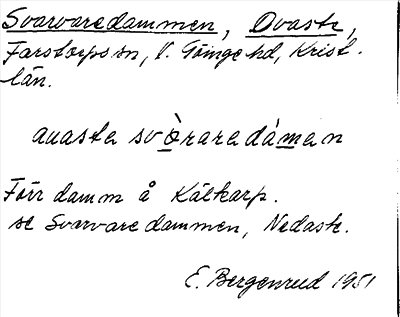 Svarvaredammen, Ovaste,
Farstorps sn, V. Göinge hd, Krist.
län.
auasta svòraredámen
Förr damm å Kälkarp.
se Svarvaredammen, Nedaste.
E. Bergenrud 1951